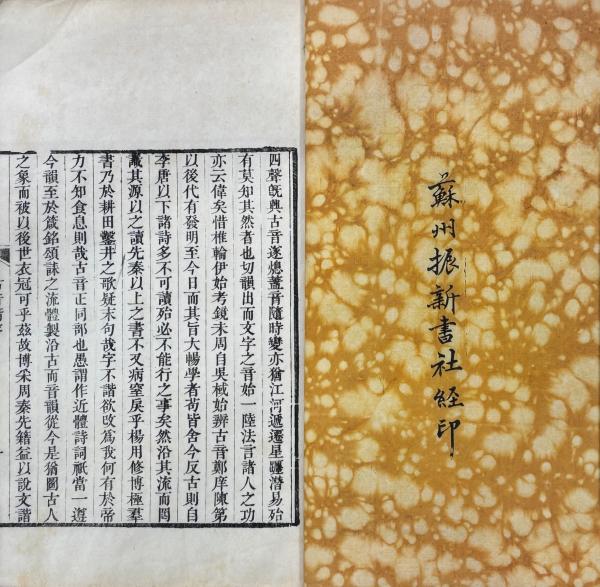 蘇州振新書社經印
四聲旣興古音遂熄葢音隨時變亦猶江河遞遷星躔潛易殆
有莫知其然者也切韻出而文字之音始一陸法言諸人之功
亦云偉矣惜椎輪伊始考鏡未周自吳棫始辨古音鄭庠陳第
以後代有發明至今日而其旨大暢學者苟皆舍今反古則自
李唐以下諸詩多不可讀殆必不能行之事矣然沿其流而罔
識其源以之讀先秦以上之書不又病窒戾乎楊用修博極羣
書乃於耕田鑿井之歌疑末句哉字不諧欲改爲我何有於帝
力不知食息則哉古音正同部也愚謂作近體詩詞祇當一遵
今韻至於箴銘頌誄之流體製沿古而音韻從今是猶圖古人
之象而被以後世衣冠可乎茲故博采周秦先籍益以說文諧